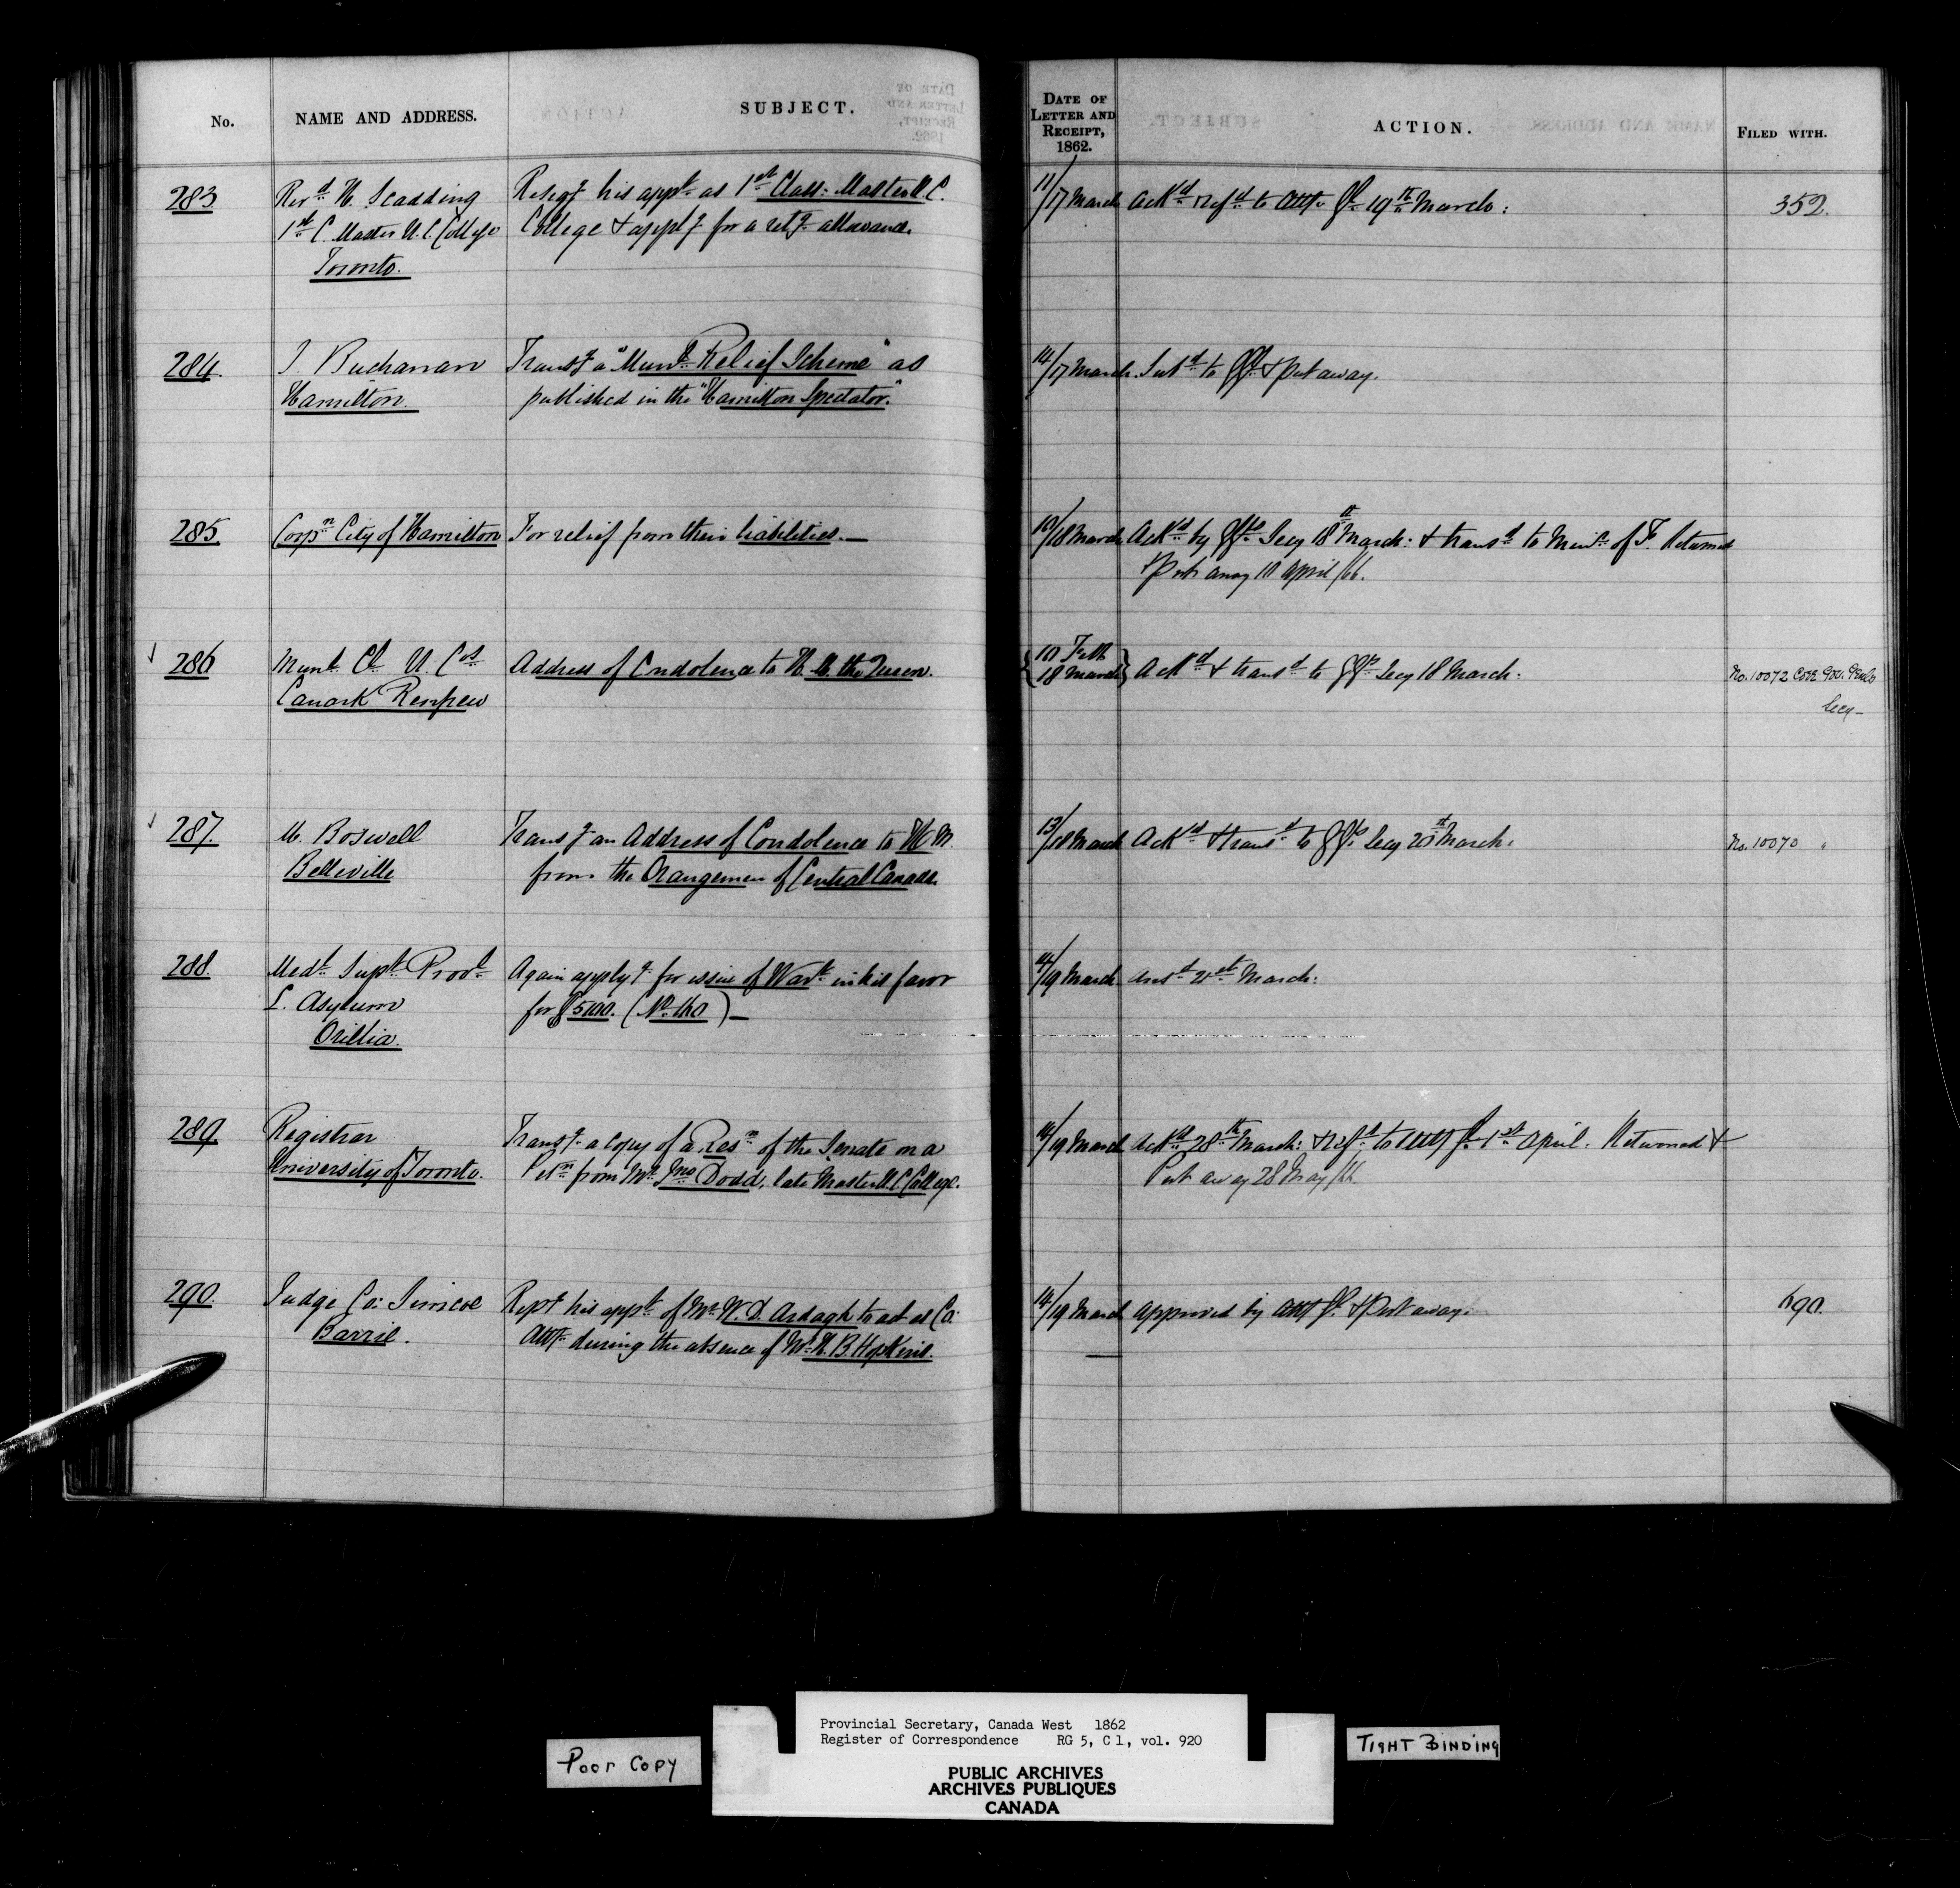 No.
NAME AND ADDRESS.
SUBJECT.
DATE OF
LETTER AND
RECEIPT,
1862.
ACTION.
FILED WITH.
283
Revd H. Scadding
1st C. Master U. C. College
Toronto.
Resigg his appt as 1st Class: Master U. C.
College & applyg for a retg allowance.
11/17 March
Ackd & refd to Atty Gl 19th March:
352.
284.
I. Buchanan
Hamilton.
Transg a "Munl Relief Scheme" as
published in the "Hamilton Spectator."
14/17 March.
Subd to GGl & Put away.
285.
Corpn City of Hamilton
For relief from their liabilities.—
10/18 March
Ackd by GGls Secy 18th March: & transd to Minr of F. Returned
& Put away 10 April /66.
286
Munl Cl U. Cos
Lanark Renfrew
Address of Condolence to H. M. the Queen.
10 Feb
18 March
Ackd & transd to GGls Secy 18 March.
No. 10072 Core Gov. Genls
Secy —
287.
M. Boswell
Belleville
Transg an Address of Condolence to H M.
from the Orangemen of Central Canada.
13/18 March
Ackd & transd to GGls Secy 20 March.
No. 10070 "
288.
Medl Supt Provl
L. Asylum
Orillia.
Again applyg for issue of Wart in his favor
for $500. (No. 160) —
14/19 March
Ansd 21st March:
289.
Registrar
University of Toronto.
Transg a Copy of a Resn of the Senate on a
Petn from Mr Jno Dodd, late Master U. C. College.
14/19 March
Ackd 28th March: & refd to Atty Gl 1st April. Returned &
Put away 28 May /66
290.
Judge Co: Simcoe
Barrie.
Reptg his appt of Mr W. D. Ardagh to act as Co:
Atty during the absence of Mr H. B. Hopkins.
14/19 March
Approved by Atty Gl & Put away.
690.
Poor Copy
Provincial Secretary, Canada West 1862
Register of Correspondence RG 5, C 1, vol. 920
PUBLIC ARCHIVES
ARCHIVES PUBLIQUES
CANADA
TIGHT BINDING